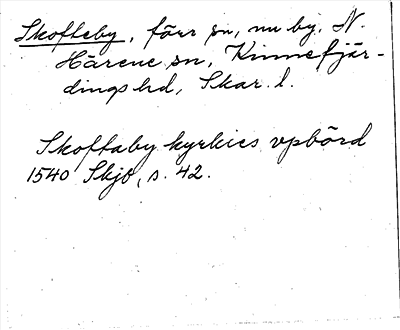 Skofteby, förr sn, nu by, N.
Härene sn, Kinnefjär-
dings hd, Skar. l.
Skoftaby kyrkies vpbörd
1540 Skjb, s. 42.